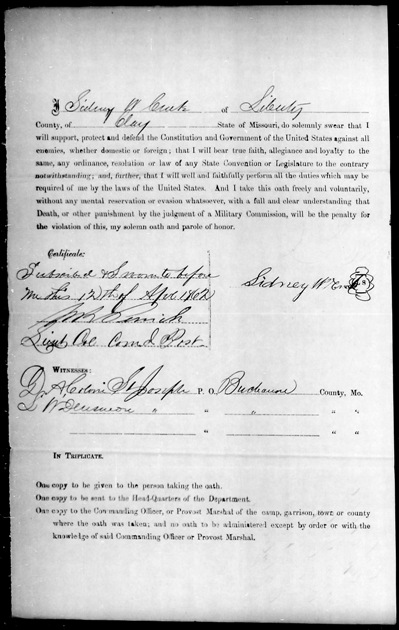 I, Sidney W of Liberty
County, of Clay State of Missouri, do solemnly swear that I
will support, protect and defend the Constitution and Government of the United States against all
enemies, whether domestic or foreign; that I will bear true faith, allegiance and loyalty to the
same, any ordinance, resolution or law of any State Convention or Legislature to the contrary
notwithstanding; and, further, that I will well and faithfully perform all the duties which may be
required of me by the laws of the United States. And I take this oath freely and voluntarily,
without any mental reservation or evasion whatsoever, with a full and clear understanding that
Death, or other punishment by the judgment of a Military Commission, will be the penalty for
the violation of this, my solemn oath and parole of honor.
Certificate:
Subscribed & Sworn to before
me this 12th of Apl 1862
Sidney W L.S.
Lieut Col Comd Post
WITNESSES:
St Joseph P. O. Buchanan County, Mo.
W " " "
" " "
IN TRIPLICATE.
One copy to be given to the person taking the oath.
One copy to be sent to the Head-Quarters of the Department.
One copy to the Commanding Officer, or Provost Marshal of the camp, garrison, town or county
where the oath was taken; and no oath to be administered except by order or with the
knowledge of said Commanding Officer or Provost Marshal.